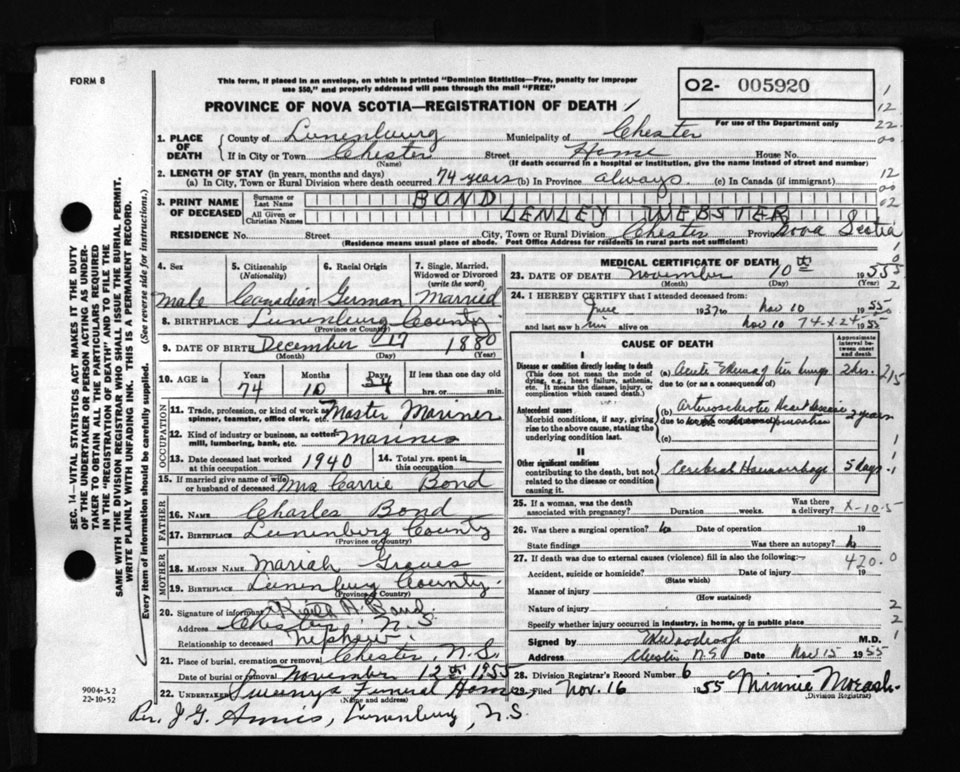 FORM 8
This form, if placed in an envelope, on which is printed "Dominion Statistics—Free, penalty for improper
use $50," and properly addressed will pass through the mail "FREE"
O2- 005920
For use of the Department only
PROVINCE OF NOVA SCOTIA—REGISTRATION OF DEATH
1. PLACE OF DEATH
County of Lunenburg Municipality of Chester
If in City or Town Chester Street Home House No.
(Name) (If death occurred in a hospital or institution, give the name instead of street and number)
2. LENGTH OF STAY (in years, months and days)
(a) In City, Town or Rural Division where death occurred 74 years (b) In Province always. (c) In Canada (if immigrant)
3. PRINT NAME OF DECEASED
Surname or Last Name BOND
All Given or Christian Names LENLEY WEBSTER
RESIDENCE No. Street City, Town or Rural Division Chester Province Nova Scotia
(Residence means usual place of abode. Post Office Address for residents in rural parts not sufficient)
4. Sex
Male
5. Citizenship
(Nationality)
Canadian
6. Racial Origin
German
7. Single, Married, Widowed or Divorced
(write the word)
Married
8. BIRTHPLACE Lunenburg County
(Province or Country)
9. DATE OF BIRTH December 17 1880
(Month) (Day) (Year)
10. AGE in
Years Months Days If less than one day old
74 10 24 hrs. or min.
OCCUPATION
11. Trade, profession, or kind of work as spinner, teamster, office clerk, etc. Master Mariner
12. Kind of industry or business, as cotton mill, lumbering, bank, etc.
13. Date deceased last worked at this occupation 1940
14. Total yrs. spent in this occupation
15. If married give name of wife or husband of deceased Mrs Carrie Bond
FATHER
16. NAME Charles Bond
17. BIRTHPLACE Lunenburg County
(Province or Country)
MOTHER
18. MAIDEN NAME Mariah Graves
19. BIRTHPLACE Lunenburg County.
(Province or Country)
20. Signature of informant Bond.
Address Chester N.S.
Relationship to deceased nephew.
21. Place of burial, cremation or removal Chester, N.S.
Date of burial or removal November 12th 1955
22. UNDERTAKER Sweeny's Funeral Home
(Name and address)
Rev. J.G. Annis, Lunenburg, N.S.
MEDICAL CERTIFICATE OF DEATH
23. DATE OF DEATH November 10th 1955
(Month) (Day) (Year)
24. I HEREBY CERTIFY that I attended deceased from:
June 1937 to Nov 10 1955
and last saw him alive on Nov 10 1955
74-X-24
CAUSE OF DEATH
Approximate interval between onset and death
I
Disease or condition directly leading to death
(This does not mean the mode of dying, e.g., heart failure, asthenia, etc. It means the disease, injury, or complication which caused death.)
(a) Acute Edema of the lungs 2 hrs.
due to (or as a consequence of)
Antecedent causes
Morbid conditions, if any, giving rise to the above cause, stating the underlying condition last.
(b) Arteriosclerotic Heart disease 2 years
due to with decompensation
(c)
II
Other significant conditions
contributing to the death, but not related to the disease or condition causing it.
Cerebral Haemorrhage 5 days
25. If a woman, was the death associated with pregnancy? Duration weeks. Was there a delivery?
X-10-5
26. Was there a surgical operation? No Date of operation 19
State findings Was there an autopsy? No
27. If death was due to external causes (violence) fill in also the following:—
420.0
Accident, suicide or homicide? Date of injury 19
(State which)
Manner of injury
(How sustained)
Nature of injury
Specify whether injury occurred in industry, in home, or in public place
Signed by M.D.
Address Chester N.S Date Nov 15 1955
28. Division Registrar's Record Number 6
29. Filed Nov. 16 1955 Minnie
(Division Registrar)
SEC. 14—VITAL STATISTICS ACT MAKES IT THE DUTY
OF THE UNDERTAKER OR PERSON ACTING AS UNDER-
TAKER TO OBTAIN ALL THE PARTICULARS REQUIRED
IN THE "REGISTRATION OF DEATH" AND TO FILE THE
SAME WITH THE DIVISION REGISTRAR WHO SHALL ISSUE THE BURIAL PERMIT.
WRITE PLAINLY WITH UNFADING INK. THIS IS A PERMANENT RECORD.
Every item of information should be carefully supplied. (See reverse side for instructions).
9004-3.2
22-10-52